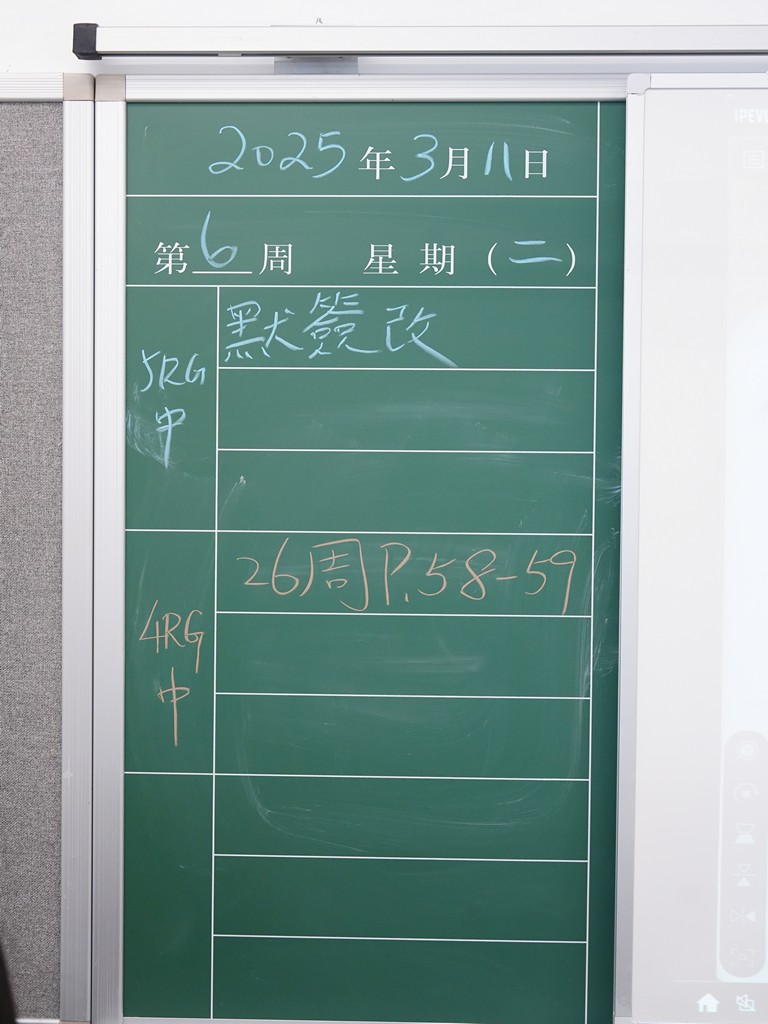 2025年3月11日
第6周 星期(二)
5RG
中
默簽改
4RG
中
26周P.58-59